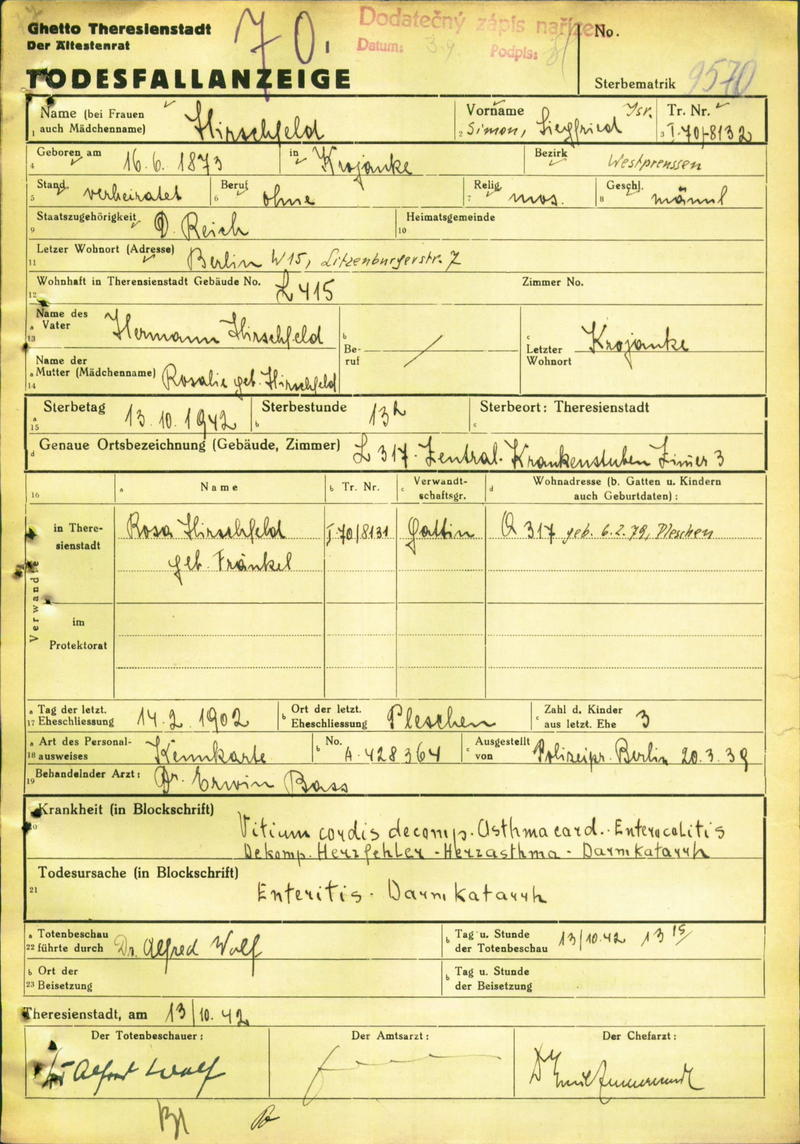 Ghetto Theresienstadt
Der Ältestenrat
70.
Dodatečný zápis naříze
Datum: Podpis:
No.
TODESFALLANZEIGE
Sterbematrik 9570
Name (bei Frauen auch Mädchenname) Hirschfeld
1
Vorname Simon, Siegfried Isr.
2
Tr. Nr. I-70/-8132
3
Geboren am 16.6.1873 in Krojanke Bezirk Westpreussen
4
Stand verheiratet Beruf ohne Relig. mos. Geschl. männl
5 6 7 8
Staatszugehörigkeit D. Reich Heimatsgemeinde
9 10
Letzer Wohnort (Adresse) Berlin W15, Litzenburgerstr. 7
11
Wohnhaft in Theresienstadt Gebäude No. L 415 Zimmer No.
12
Name des Vater Hermann Hirschfeld
a 13
b Beruf
c Letzter Wohnort Krojanke
Name der Mutter (Mädchenname) Rosalie geb. Hirschfeld
a 14
Sterbetag 13.10.1942 Sterbestunde 13h Sterbeort: Theresienstadt
a 15 b c
Genaue Ortsbezeichnung (Gebäude, Zimmer) L 317 - Zentral. Krankenstuben Zimer 3
d
16 a Name b Tr. Nr. c Verwandtschaftsgr. d Wohnadresse (b. Gatten u. Kindern auch Geburtdaten):
Verwandte
in Theresienstadt Rosa Hirschfeld I-70/8131 Gattin Q 317 geb. 6.2.79, Pleschen
geb. Fränkel
im Protektorat
a 17 Tag der letzt. Eheschliessung 14.2.1902 b Ort der letzt. Eheschliessung Pleschen c Zahl d. Kinder aus letzt. Ehe 3
a 18 Art des Personalausweises Kennkarte b No. A-428364 c Ausgestellt von Polizeipr. Berlin 20.3.39
19 Behandelnder Arzt: Dr. Erwin Bass
Krankheit (in Blockschrift) Vitium cordis decomp. Asthma card. Enterocolitis
20 Dekomp. Herzfehler - Herzasthma - Darmkatarrh
Todesursache (in Blockschrift)
21 Enteritis - Darmkatarrh
a 22 Totenbeschau führte durch Dr. Alfred Wolf b Tag u. Stunde der Totenbeschau 13/10.42 13 15/
b 23 Ort der Beisetzung b Tag u. Stunde der Beisetzung
Theresienstadt, am 13/10.42
Der Totenbeschauer: Der Amtsarzt: Der Chefarzt:
Dr Alfred Wolf